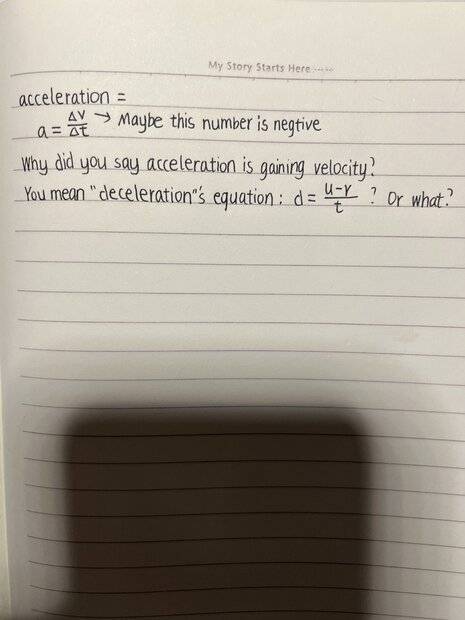 My Story Starts Here -----
acceleration =
a = ΔV/Δt → Maybe this number is negtive
Why did you say acceleration is gaining velocity?
You mean "deceleration"'s equation : d = u-v/t ? Or what?